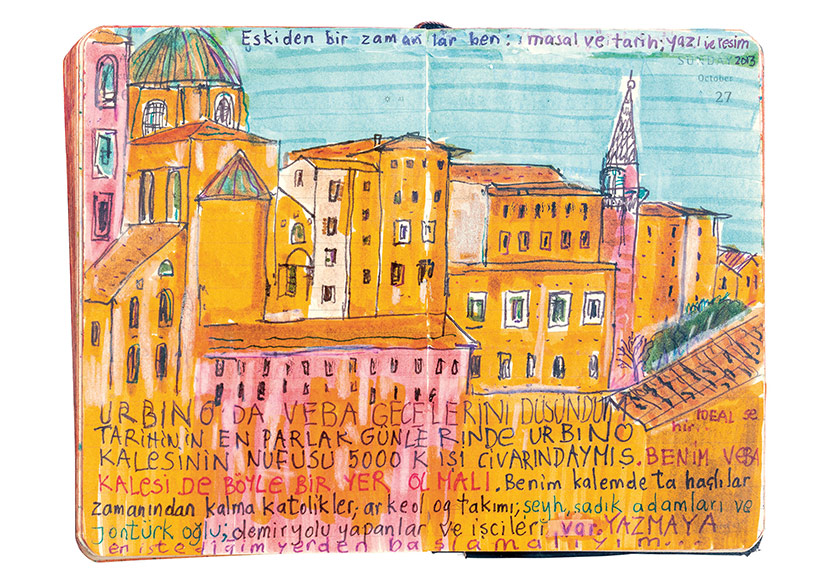 Eskiden bir zamanlar ben: masal ve tarih; yazı ve resim
SUNDAY 2013
October
27
URBINO'DA VEBA GECELERİNİ DÜŞÜNDÜM
İDEAL şe
hir..
TARİHİNİN EN PARLAK GÜNLERİNDE URBINO
KALESİNİN NÜFUSU 5000 KİŞİ CİVARINDAYMIŞ. BENİM VEBA
KALESİ DE BÖYLE BİR YER OLMALI. Benim kalemde ta haçlılar
zamanından kalma katolikler, arkeolog takımı; şeyh, sadık adamları ve
Jöntürk oğlu; demiryolu yapanlar ve işcileri var. YAZMAYA
en istediğim yerden başlamalıyım...